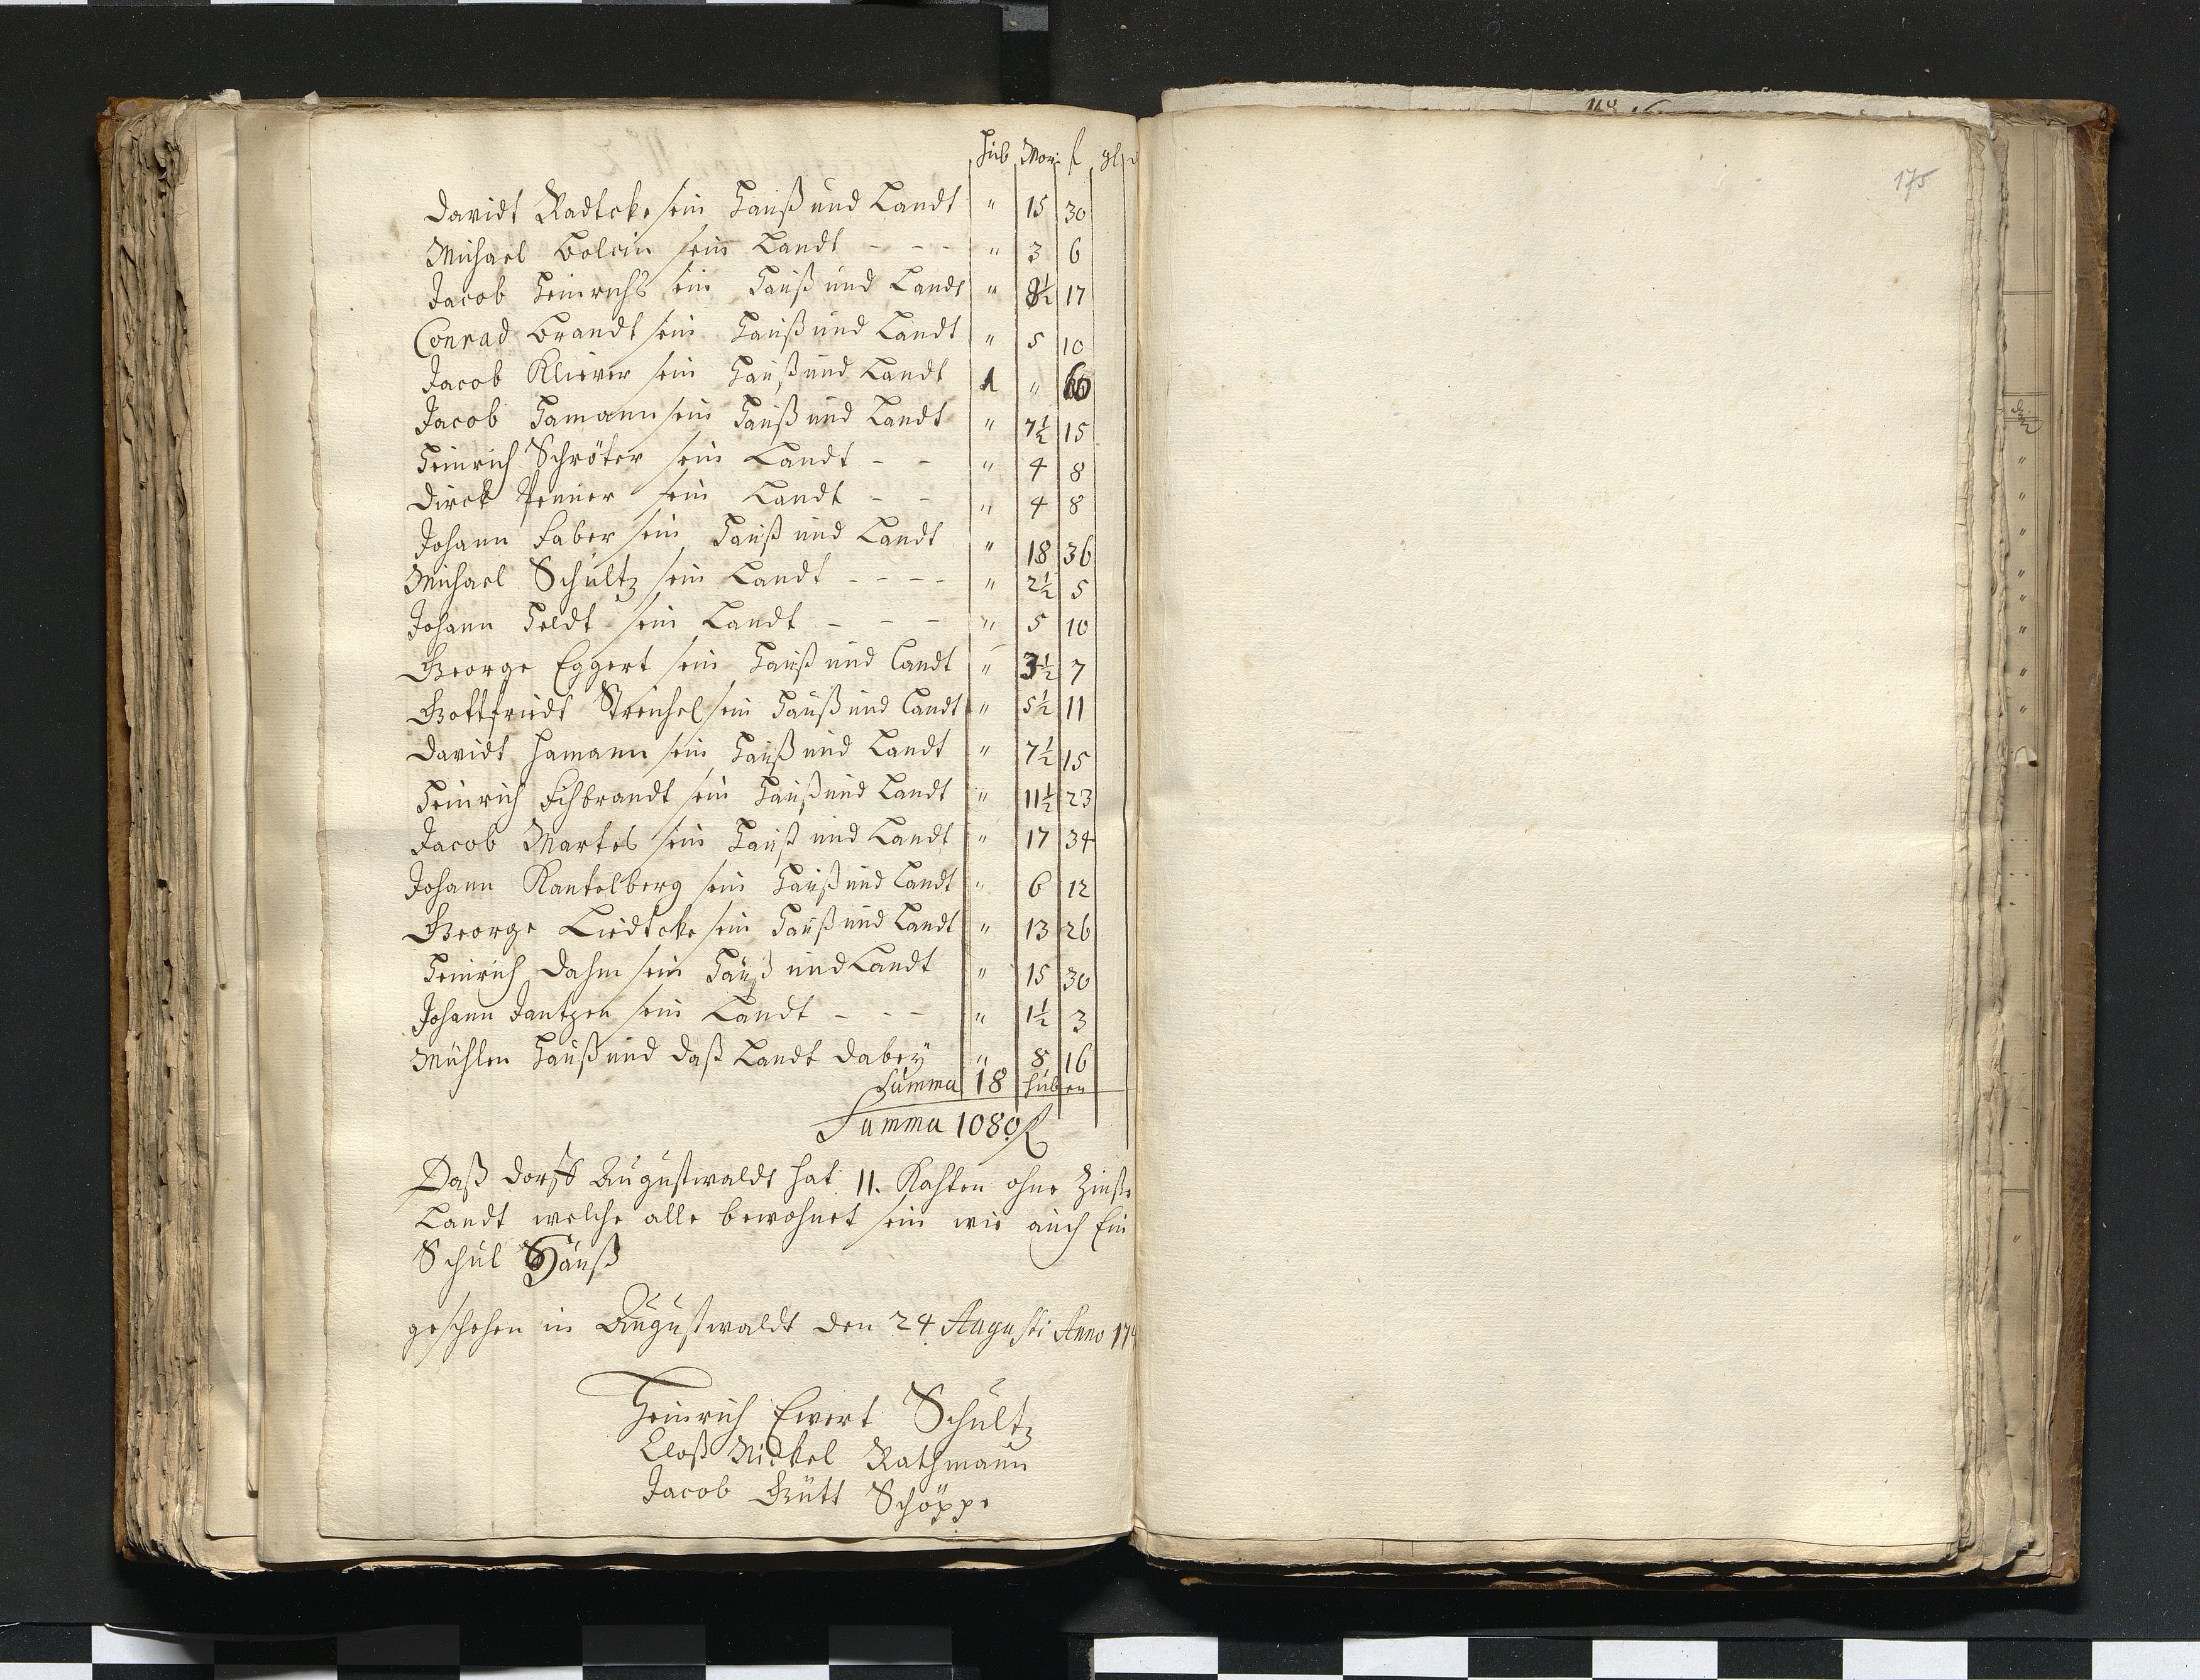 Hub Mor: f gl
Davidt Radtcke sein Hauß und Landt " 15 30
Michael Bolein sein Landt - - - - " 3 6
Jacob Heinrichs sein Hauß und Landt " 8½ 17
Conrad Brandt sein Hauß und Landt " 5 10
Jacob Kliewer sein Hauß und Landt 1 " 60
Jacob Hamann sein Hauß und Landt " 7½ 15
Heinrich Schröter sein Landt - - " 4 8
Dirck Penner sein Landt - - " 4 8
Johann Faber sein Hauß und Landt " 18 36
Michael Schultz sein Landt - - - - " 2½ 5
Johann Feldt sein Landt - - - " 5 10
George Eggert sein Hauß und Landt " 3½ 7
Gottfriedt Streichel sein Hauß und Landt " 5½ 11
Davidt Hamann sein Hauß und Landt " 7½ 15
Heinrich Fischbrandt sein Hauß und Landt " 11½ 23
Jacob Martes sein Hauß und Landt " 17 34
Johann Kantelberg sein Hauß und Landt " 6 12
George Liedtcke sein Hauß und Landt " 13 26
Heinrich Dahm sein Hauß und Landt " 15 30
Johann Jantzen sein Landt - - - " 1½ 3
Mühlen Hauß und daß Landt dabey " 8 16
Summa 18 Huben
Summa 1080 f
Daß Dorff Augustwaldt hat 11. Kahten ohne Zinße
Landt welche alle bewohnet sein wie auch Ein
Schul Hauß
geschehen in Augustwaldt den 24 Augusti Anno 174
Heinrich Ewert Schultz
Cloß Nickel Rathmann
Jacob Gütt Schöppe
175